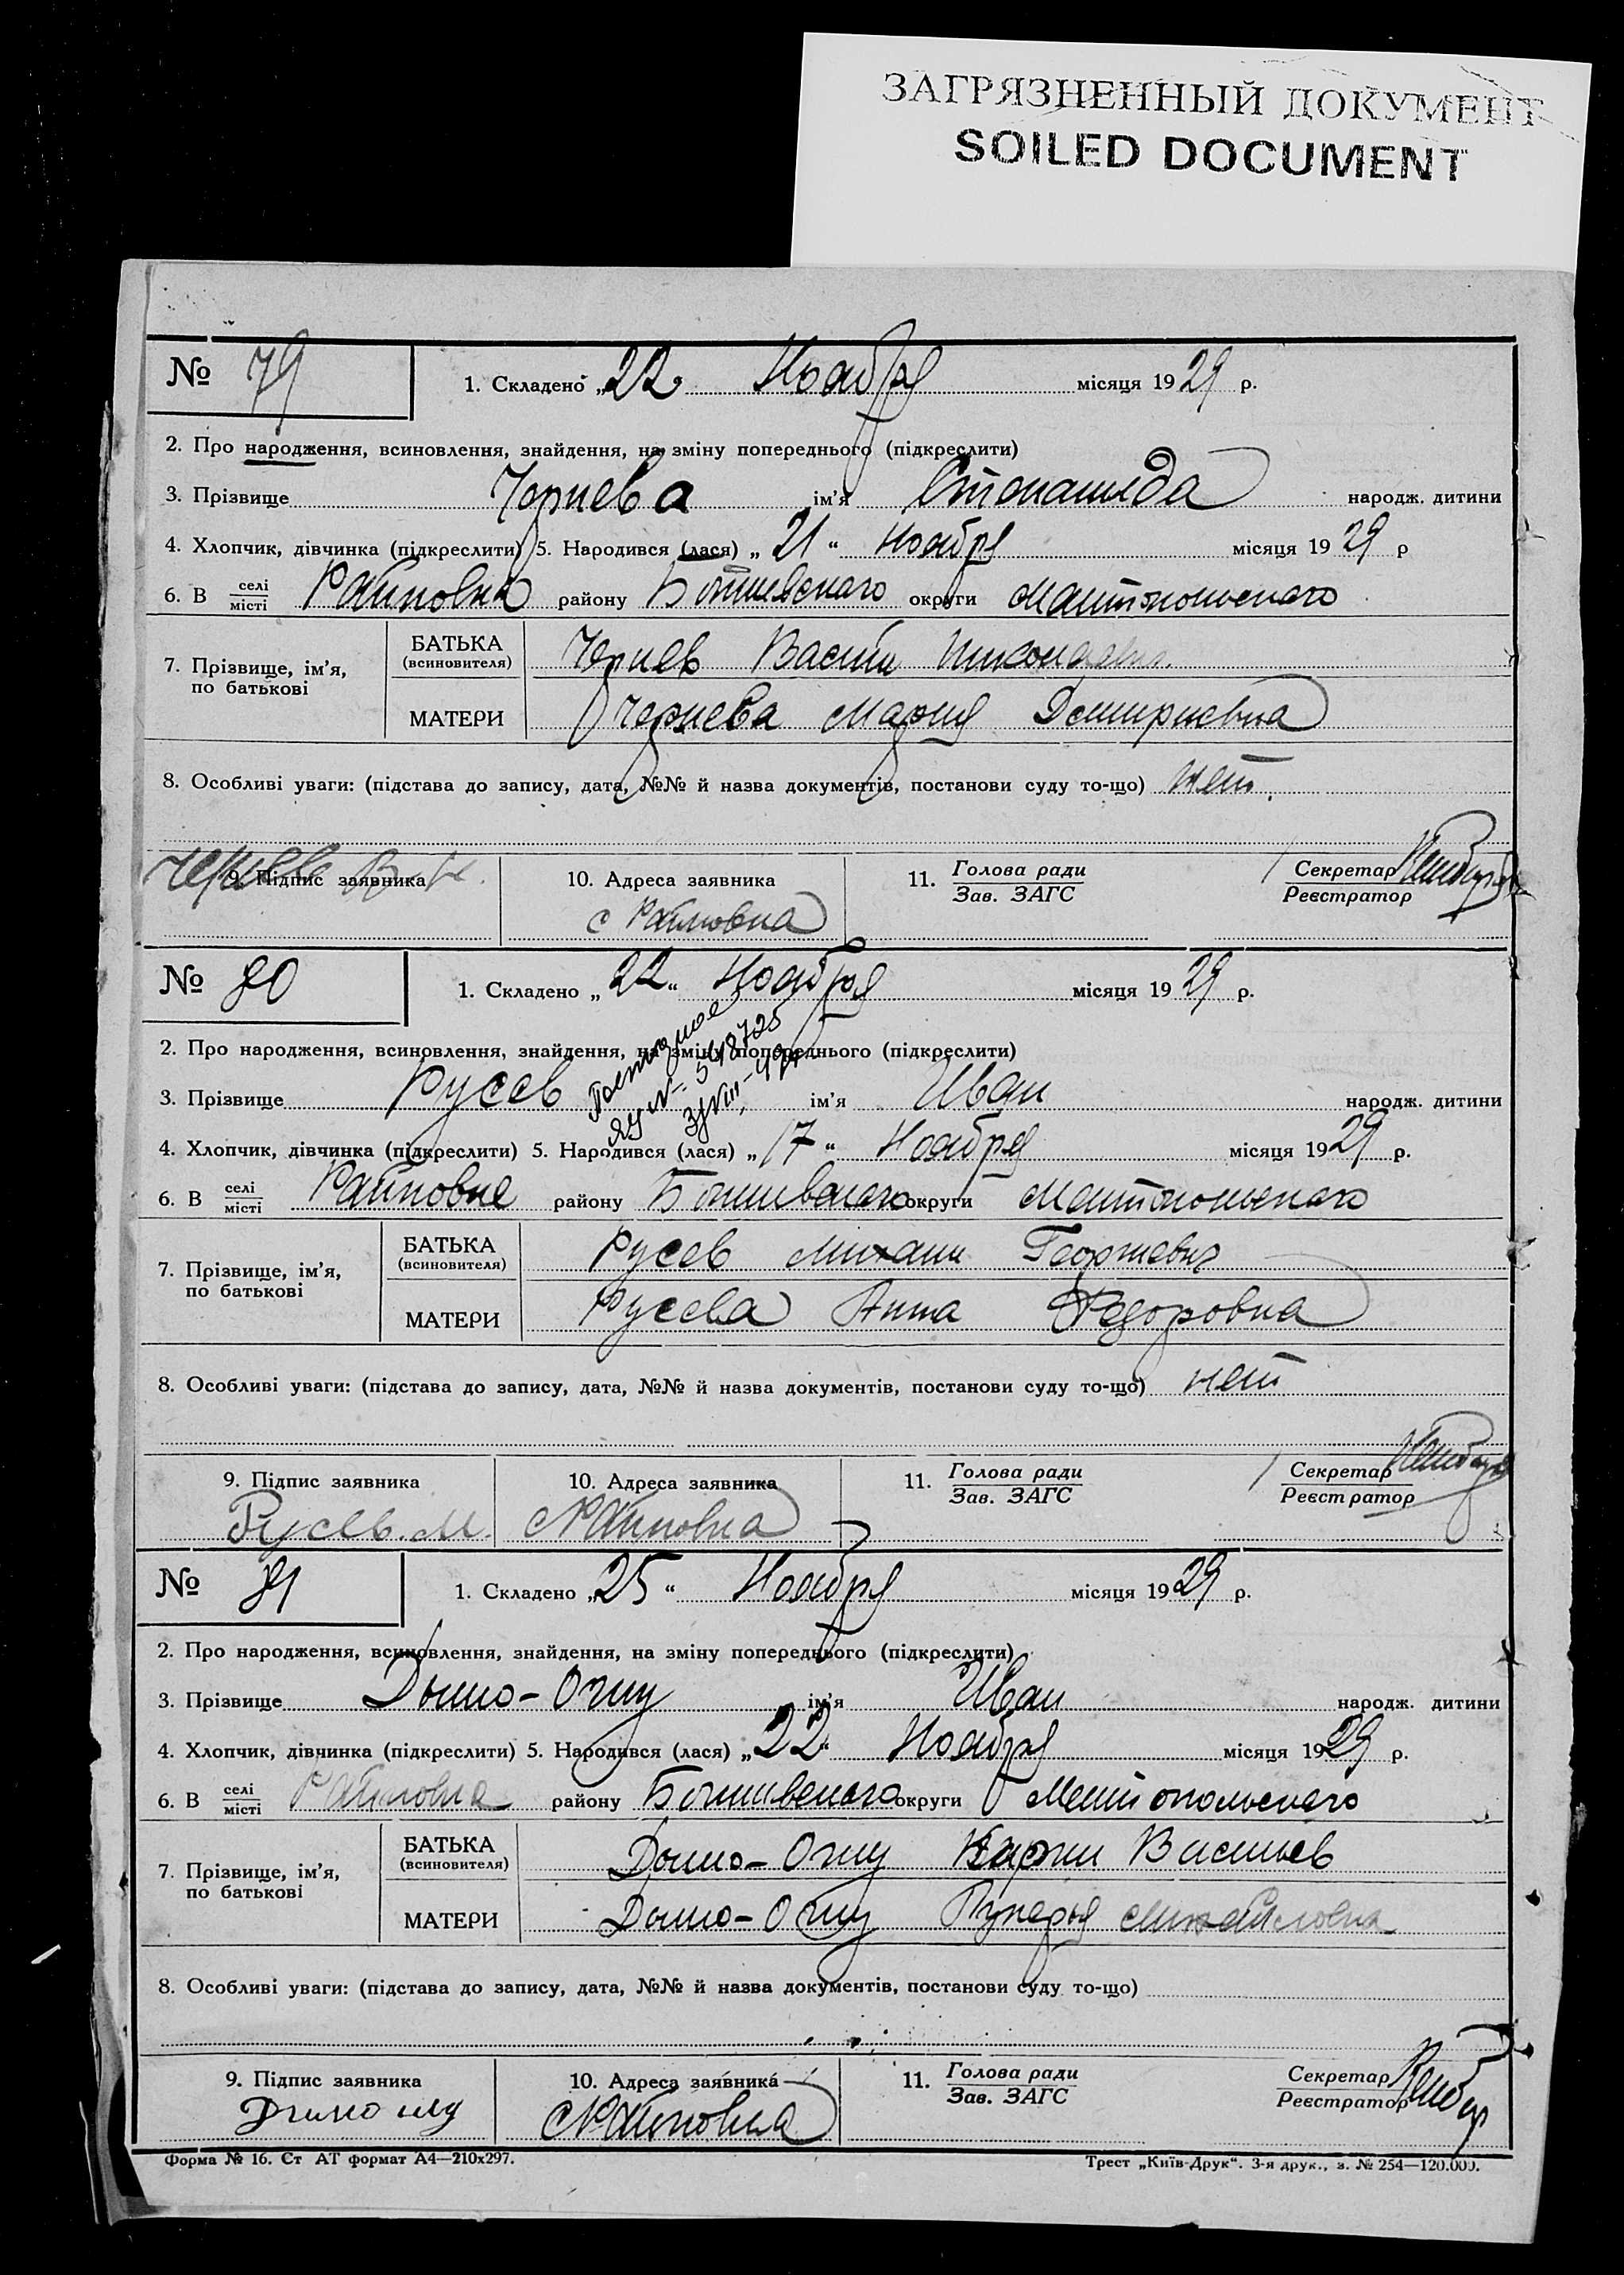 ЗАГРЯЗНЕННЫЙ ДОКУМЕНТ
SOILED DOCUMENT
№ 79 1. Складено „22“ Ноября місяця 1929 р.
2. Про народження, всиновлення, знайдення, на зміну попереднього (підкреслити)
3. Прізвище Чернева ім'я народж. дитини
4. Хлопчик, дівчинка (підкреслити) 5. Народився (лася) „21“ Ноября місяця 1929 р
6. В селі/місті Райновка району Ботиевского округи Мелитопольского
7. Прізвище, ім'я, по батькові
БАТЬКА (всиновителя) Чернев Васили
МАТЕРИ Чернева Мария Дмитриевна
8. Особливі уваги: (підстава до запису, дата, №№ й назва документів, постанови суду то-що) нет.
9. Підпис заявника 10. Адреса заявника 11. Голова ради/Зав. ЗАГС Секретар/Реєстратор
с Райновка
№ 80 1. Складено „22“ Ноября місяця 1929 р.
2. Про народження, всиновлення, знайдення, на зміну попереднього (підкреслити)
3. Прізвище Русев ім'я Иван народж. дитини
4. Хлопчик, дівчинка (підкреслити) 5. Народився (лася) „17“ Ноября місяця 1929 р.
6. В селі/місті Райновке району Ботиевского округи Мелитопольского
7. Прізвище, ім'я, по батькові
БАТЬКА (всиновителя) Русев Михаил Георгиевич
МАТЕРИ Русева Анна Федоровна
8. Особливі уваги: (підстава до запису, дата, №№ й назва документів, постанови суду то-що) нет
9. Підпис заявника 10. Адреса заявника 11. Голова ради/Зав. ЗАГС Секретар/Реєстратор
Русев. М. с Райновка
№ 81 1. Складено „25“ Ноября місяця 1929 р.
2. Про народження, всиновлення, знайдення, на зміну попереднього (підкреслити)
3. Прізвище ім'я Иван народж. дитини
4. Хлопчик, дівчинка (підкреслити) 5. Народився (лася) „22“ Ноября місяця 1929 р.
6. В селі/місті Райновка району Ботиевского округи Мелитопольского
7. Прізвище, ім'я, по батькові
БАТЬКА (всиновителя)
МАТЕРИ Михайловна
8. Особливі уваги: (підстава до запису, дата, №№ й назва документів, постанови суду то-що)
9. Підпис заявника 10. Адреса заявника 11. Голова ради/Зав. ЗАГС Секретар/Реєстратор
с Райновка
Форма № 16. Ст АТ формат А4—210х297. Трест „Київ-Друк“. 3-я друк., з. № 254—120.000.